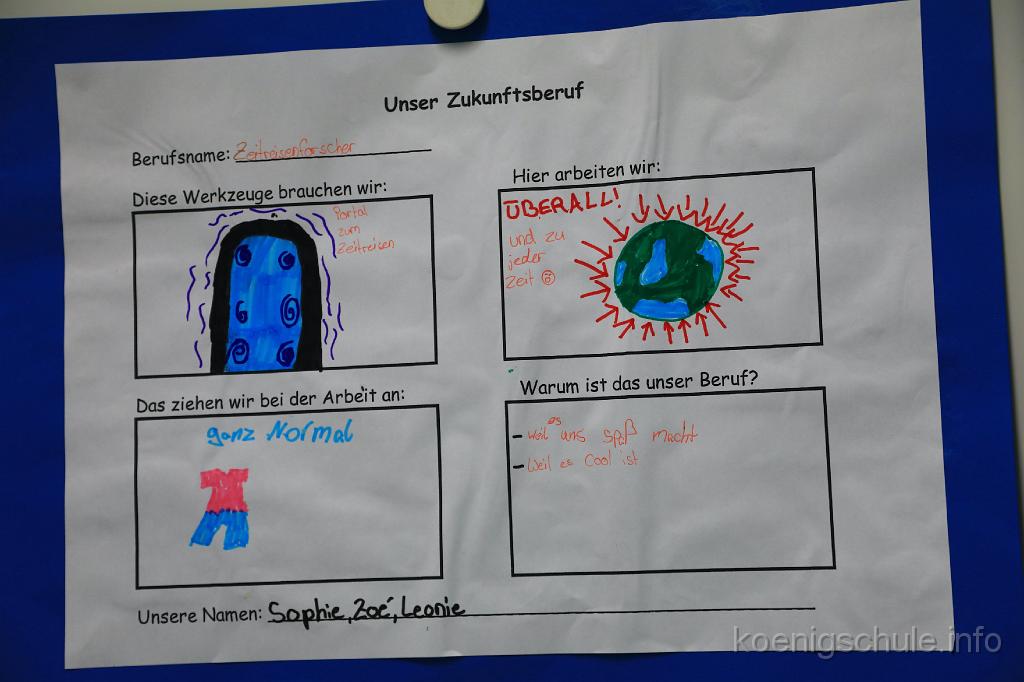 Unser Zukunftsberuf
Berufsname: Zeitreisenforscher
Diese Werkzeuge brauchen wir:
Portal
zum
Zeitreisen
Hier arbeiten wir:
ÜBERALL!
und zu
jeder
Zeit
Das ziehen wir bei der Arbeit an:
ganz Normal
Warum ist das unser Beruf?
- weil es uns spaß macht
- Weil es Cool ist
Unsere Namen: Sophie, Zoé, Leonie
koenigschule.info